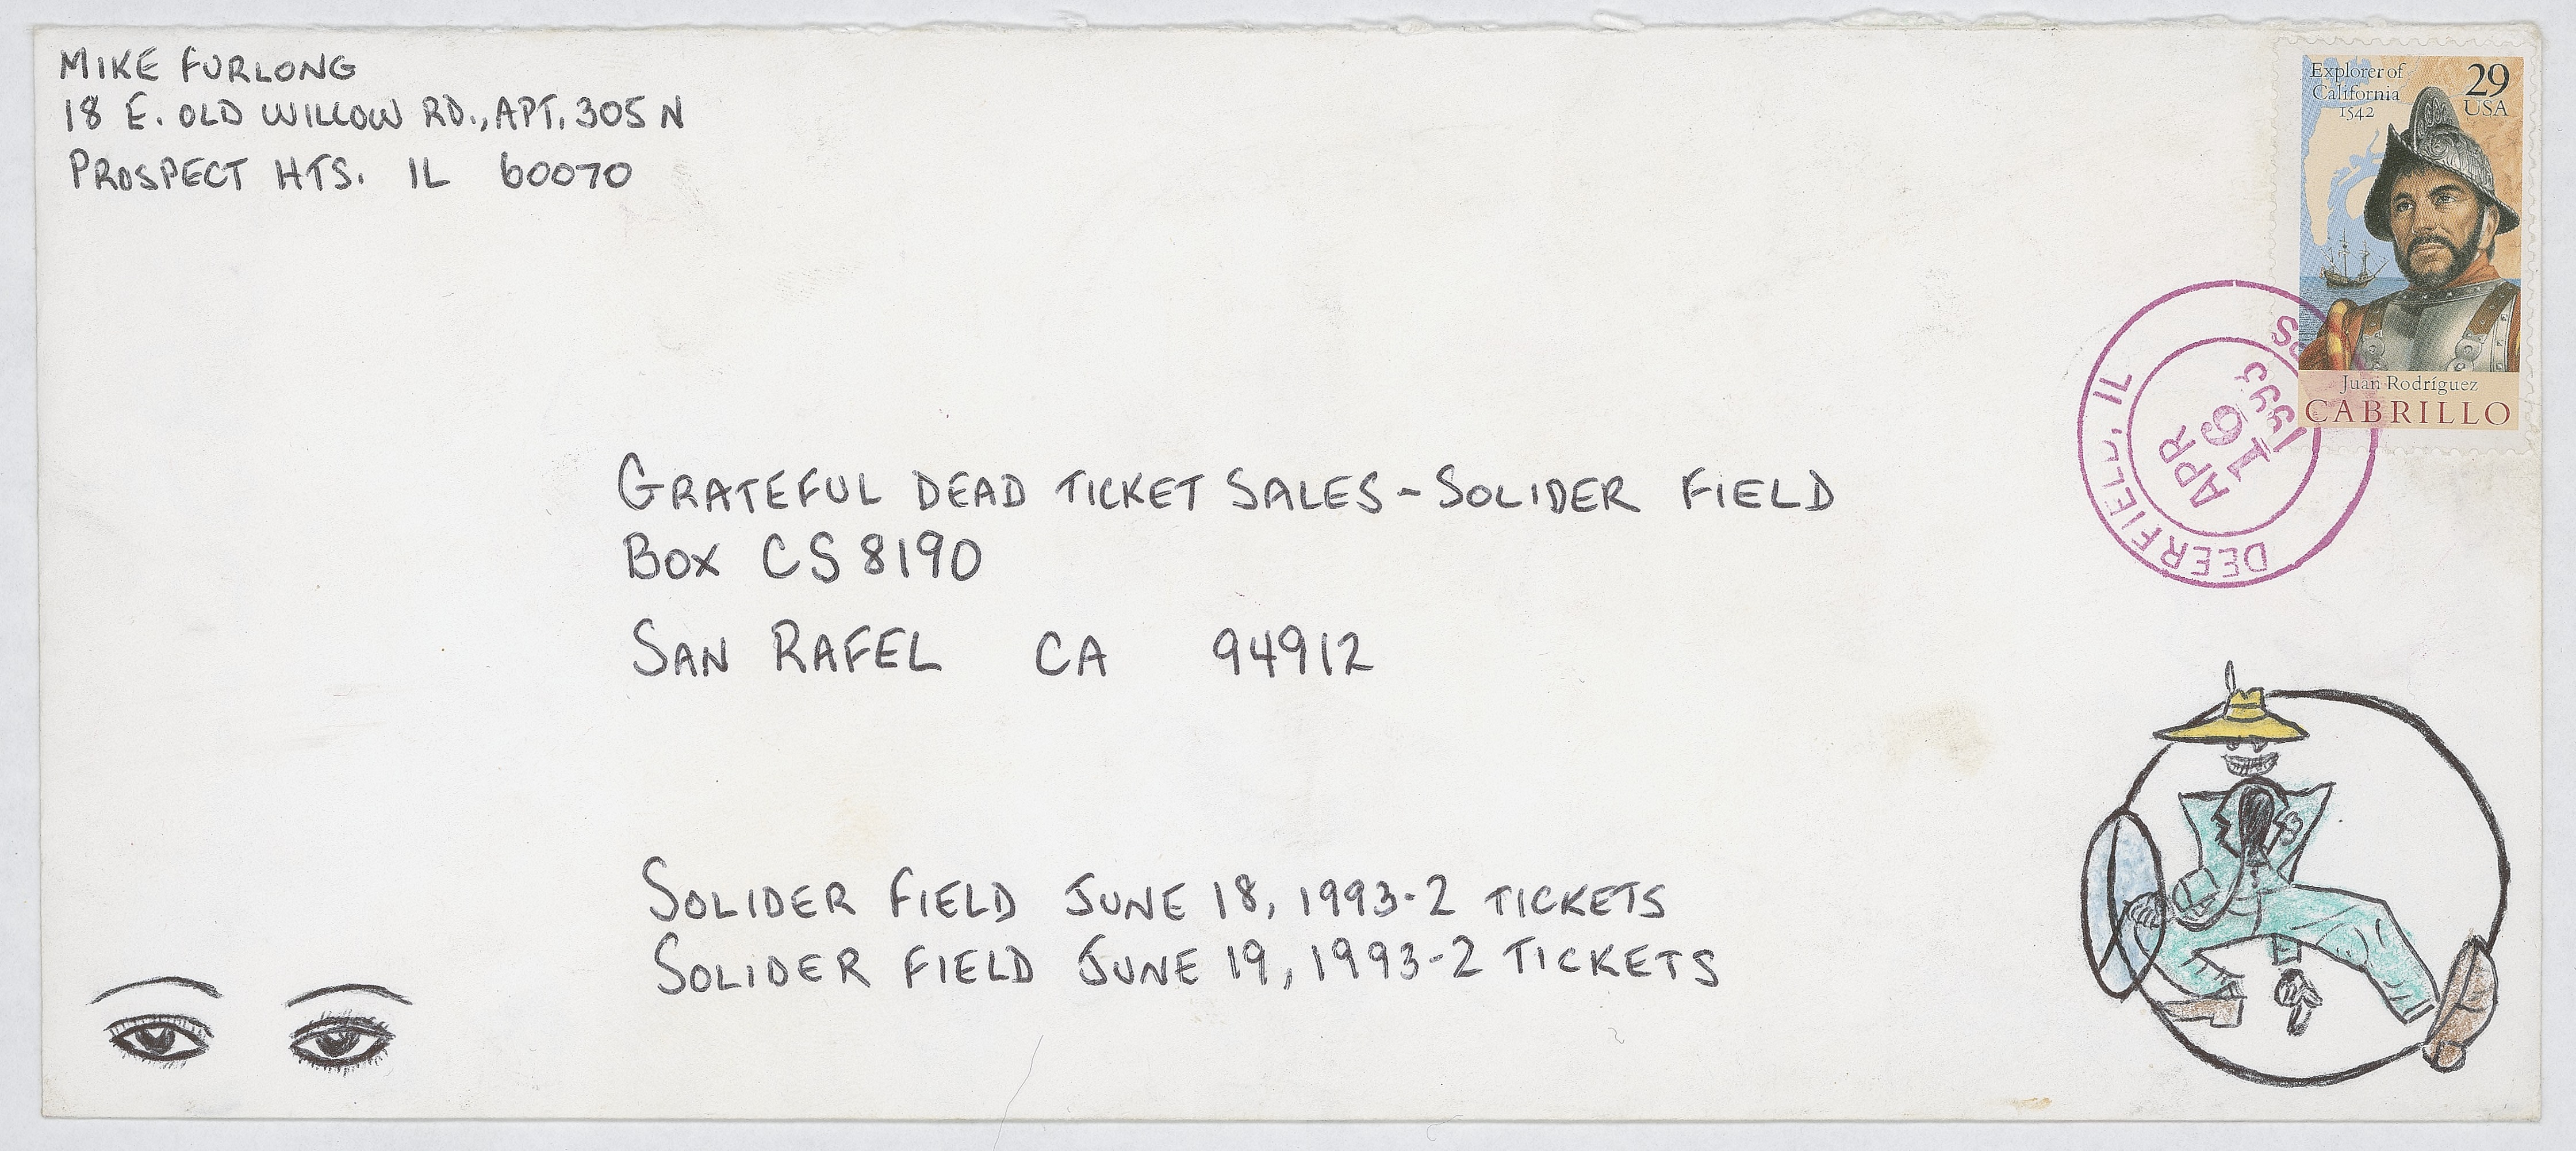 MIKE FURLONG
18 E. OLD WILLOW RD., APT. 305 N
PROSPECT HTS. IL 60070
Explorer of
California
1542
29
USA
Juan Rodríguez
CABRILLO
DEERFIELD, IL
APR
16
1993
GRATEFUL DEAD TICKET SALES - SOLIDER FIELD
BOX CS 8190
SAN RAFEL CA 94912
SOLIDER FIELD JUNE 18, 1993 - 2 TICKETS
SOLIDER FIELD JUNE 19, 1993 - 2 TICKETS